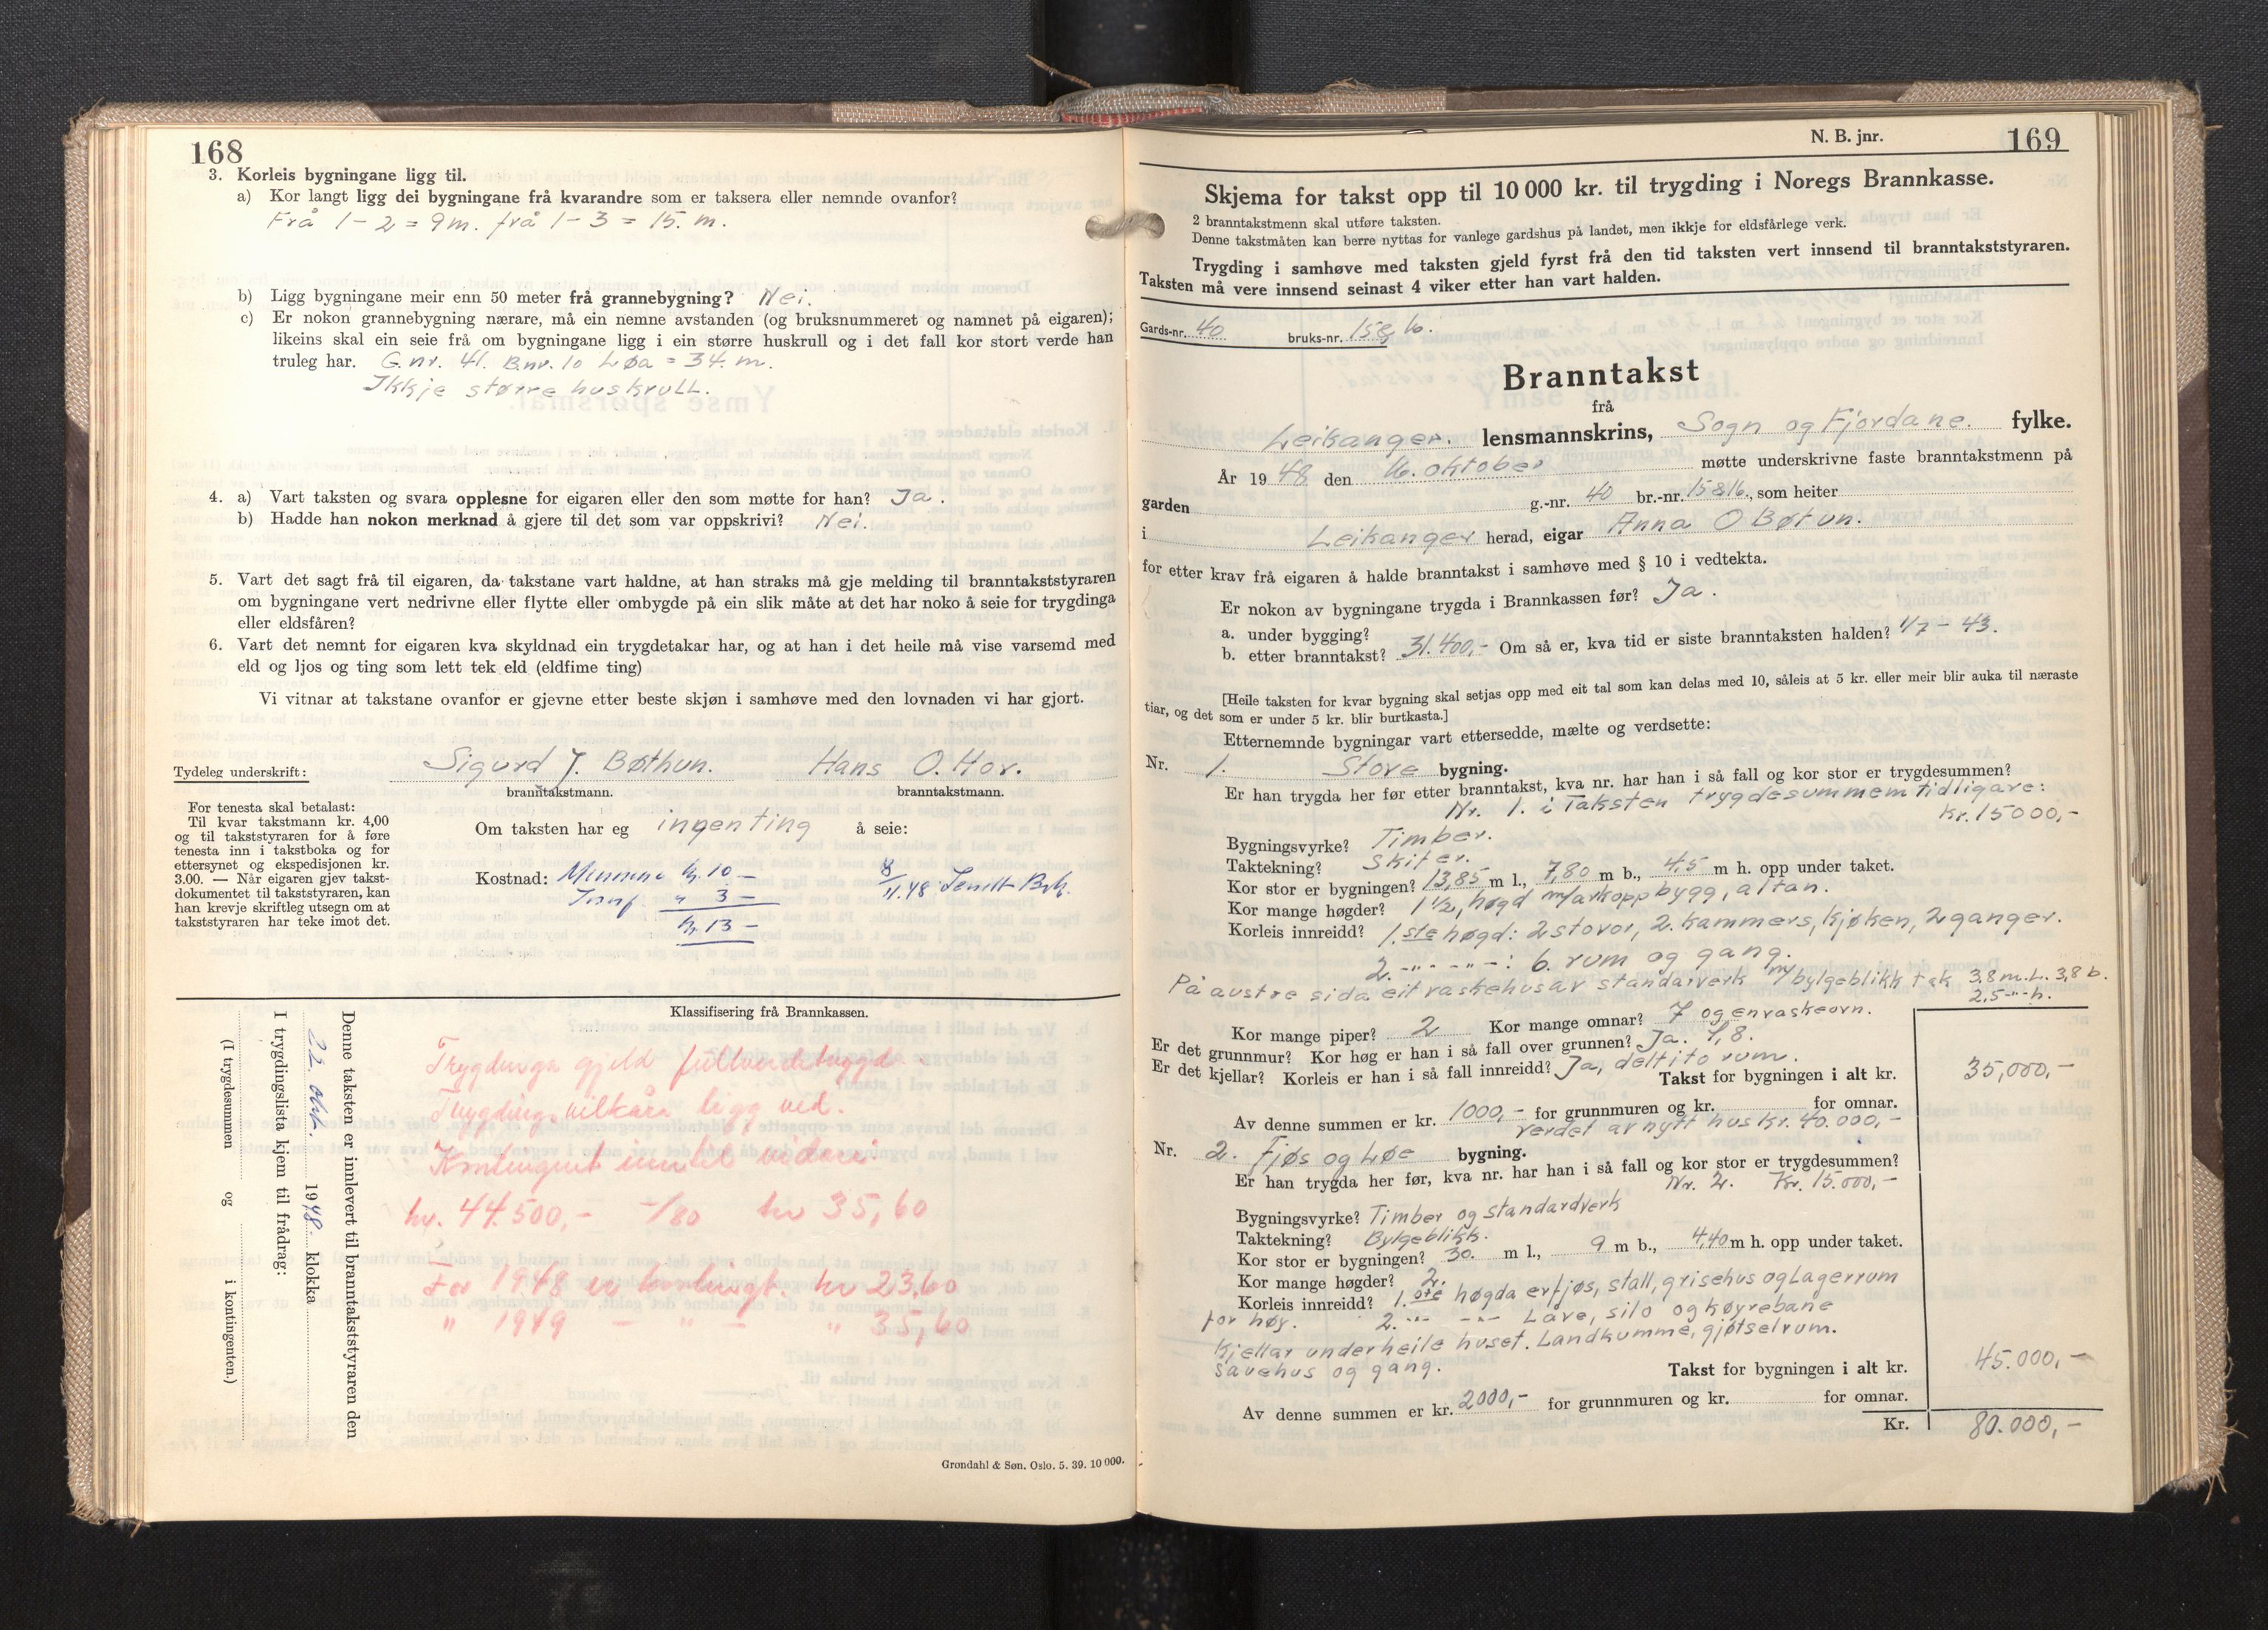 168
3. Korleis bygningane ligg til.
a) Kor langt ligg dei bygningane frå kvarandre som er taksera eller nemnde ovanfor?
Frå 1 - 2 = 9 m. frå 1 - 3 = 15. m.
b) Ligg bygningane meir enn 50 meter frå grannebygning? Nei.
c) Er nokon grannebygning nærare, må ein nemne avstanden (og bruksnummeret og namnet på eigaren);
likeins skal ein seie frå om bygningane ligg i ein større huskrull og i det fall kor stort verde han
truleg har. G.nr. 41. B.nr. 10 Løa = 34. m.
Ikkje større huskrull.
4. a) Vart taksten og svara opplesne for eigaren eller den som møtte for han? Ja.
b) Hadde han nokon merknad å gjere til det som var oppskrivi? Nei.
5. Vart det sagt frå til eigaren, da takstane vart haldne, at han straks må gje melding til branntakststyraren
om bygningane vert nedrivne eller flytte eller ombygde på ein slik måte at det har noko å seie for trygdinga
eller eldsfåren?
6. Vart det nemnt for eigaren kva skyldnad ein trygdetakar har, og at han i det heile må vise varsemd med
eld og ljos og ting som lett tek eld (eldfime ting)
Vi vitnar at takstane ovanfor er gjevne etter beste skjøn i samhøve med den lovnaden vi har gjort.
Tydeleg underskrift: Sigurd J. Bøthun. Hans O. Hov.
branntakstmann. branntakstmann.
For tenesta skal betalast:
Til kvar takstmann kr. 4,00
og til takststyraren for å føre
tenesta inn i takstboka og for
ettersynet og ekspedisjonen kr.
3.00. — Når eigaren gjev takst-
dokumentet til takststyraren, kan
han krevje skriftleg utsegn om at
takststyraren har teke imot det.
Om taksten har eg ingenting å seie:
Kostnad: Mennene kr. 10 -
" 3 -
kr. 13 -
8/11.48 Sendt Brk.
Klassifisering frå Brannkassen.
Trygdinga gjeld fullverdetrygd.
Trygdingsvilkåra ligg ved.
Kontingent inntil vidare:
kr. 44.500,- -/80 kr 35,60
For 1948 er kontingt. kr 23,60
" 1949 - " - " 35,60
Denne taksten er innlevert til branntakststyraren den
22. okt. 1948. klokka
I trygdingslista kjem til frådrag:
(I trygdesummen og i kontingenten.)
Grøndahl & Søn. Oslo. 5. 39. 10 000.
N. B. jnr. 169
Skjema for takst opp til 10 000 kr. til trygding i Noregs Brannkasse.
2 branntakstmenn skal utføre taksten.
Denne takstmåten kan berre nyttas for vanlege gardshus på landet, men ikkje for eldsfårlege verk.
Trygding i samhøve med taksten gjeld fyrst frå den tid taksten vert innsend til branntakststyraren.
Taksten må vere innsend seinast 4 viker etter han vart halden.
Gards-nr. 40 bruks-nr. 15 & 16.
Branntakst
frå
Leikanger. lensmannskrins, Sogn og Fjordane. fylke.
År 1948 den 16. oktober møtte underskrivne faste branntakstmenn på
garden g.-nr. 40 br.-nr. 15 & 16., som heiter
i Leikanger herad, eigar Anna O Bøtun.
for etter krav frå eigaren å halde branntakst i samhøve med § 10 i vedtekta.
Er nokon av bygningane trygda i Brannkassen før? Ja.
a. under bygging?
b. etter branntakst? 31.400,- Om så er, kva tid er siste branntaksten halden? 1/7 - 43.
[Heile taksten for kvar bygning skal setjas opp med eit tal som kan delas med 10, såleis at 5 kr. eller meir blir auka til næraste
tiar, og det som er under 5 kr. blir burtkasta.]
Etternemnde bygningar vart ettersedde, mælte og verdsette:
Nr. 1. Stove bygning.
Er han trygda her før etter branntakst, kva nr. har han i så fall og kor stor er trygdesummen?
Nr. 1. i Taksten trygdesummem tidligare:
Kr. 15000,-
Bygningsvyrke? Timber.
Taktekning? Skifer.
Kor stor er bygningen? 13,85 m l., 7,80 m b., 4,5 m h. opp under taket.
Kor mange høgder? 1 1/2, høgd m/arkoppbygg, altan.
Korleis innreidd? 1.ste høgd: 2 stovor, 2. kammers, kjøken, 2 ganger.
2. -"- -"-: 6. rum og gang.
På austre sida eit vaskehus av standarverk m/bylgeblikk tak 3,8 m.L. 3,8 b.
2,5 -"- h.
Kor mange piper? 2 Kor mange omnar? 7 og en vaskeovn.
Er det grunnmur? Kor høg er han i så fall over grunnen? Ja. 1,8.
Er det kjellar? Korleis er han i så fall innreidd? Ja, delt i to rum.
Takst for bygningen i alt kr. 35,000,-
Av denne summen er kr. 1000,- for grunnmuren og kr. for omnar.
verdet av nytt hus kr. 40.000,-
Nr. 2. Fjøs og Løe bygning.
Er han trygda her før, kva nr. har han i så fall og kor stor er trygdesummen?
Nr. 2. Kr. 15.000,-
Bygningsvyrke? Timber og standardverk
Taktekning? Bylgeblikk.
Kor stor er bygningen? 30. m l., 9 m b., 4,40 m h. opp under taket.
Kor mange høgder? 2.
Korleis innreidd? 1.ste høgda er fjøs, stall, grisehus og Lagerrum
for høy. 2. -"- -"- Låve, silo og køyrebane
Kjellar under heile huset. Landkumme, gjøtselrum.
Sauehus og gang.
Takst for bygningen i alt kr. 45.000,-
Av denne summen er kr. 2000,- for grunnmuren og kr. for omnar.
Kr. 80.000,-